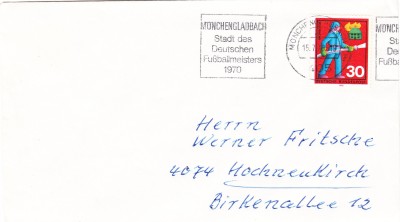 MÖNCHENGLADBACH
Stadt des
Deutschen
Fußballmeisters
1970
MÖNCHEN
15.7
30
MÖNCH
Sta
De
Fußba
Herrn
Werner Fritsche
4074 Hochneukirch
Birkenallee 12